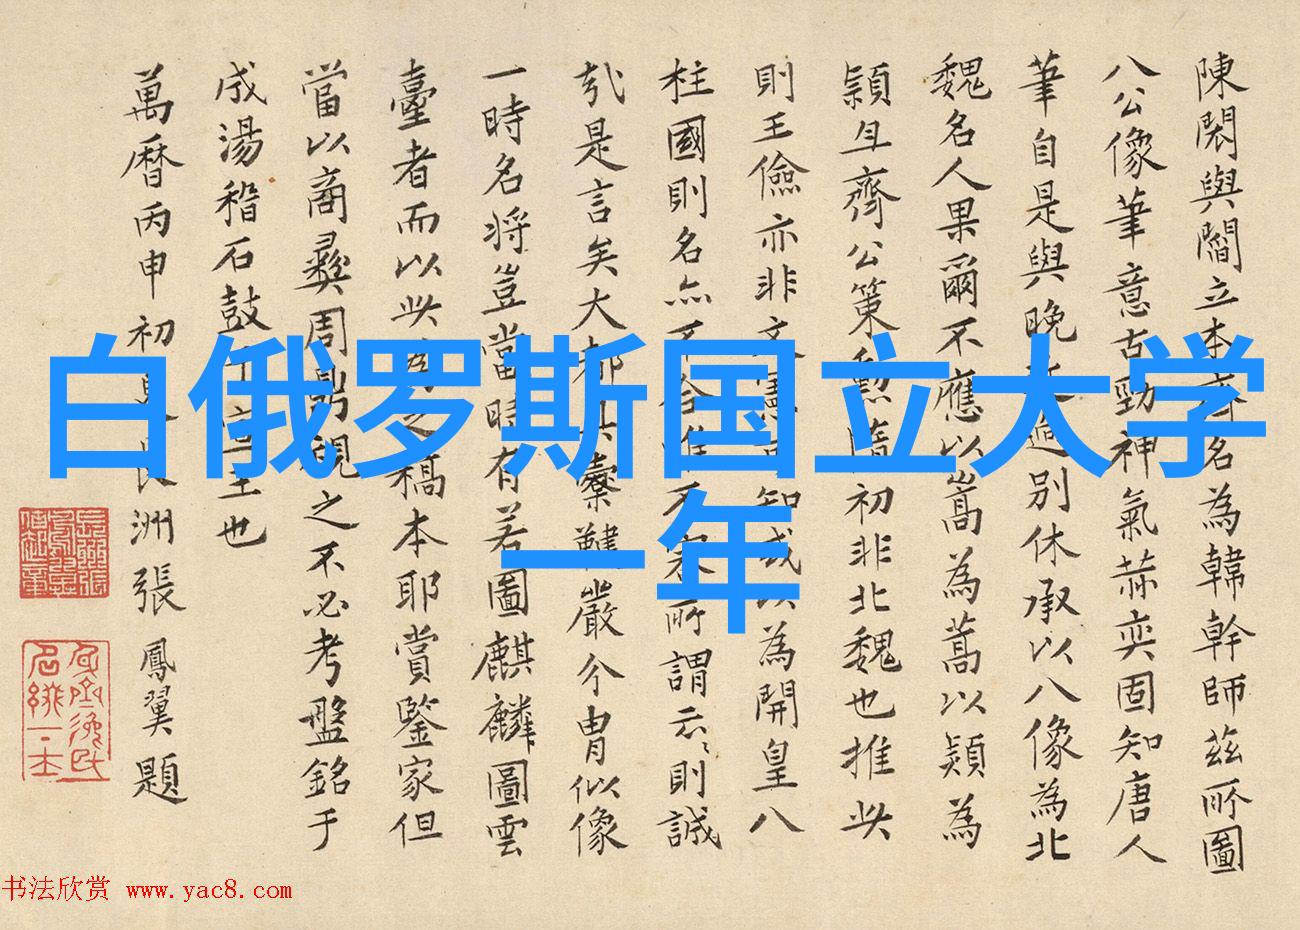 陳閎與閻立本齊名為韓幹師茲所圖
八公像筆意古勁神氣赫奕固知唐人
筆自是與晚 迥別休承以八像為北
魏名人果爾不應以嵩為蒿以頴為
穎且齊公策勲隋初非北魏也推此
則王儉亦非文憲可知或以為開皇八
柱國則名亦不合唯不宋所謂云云則誠
哉是言矣大都其櫜鞬嚴介冑似像
一時名將豈當時有若圖麒麟圖雲
臺者而以此為之稿本耶賞鑒家但
當以商彝周鼎視之不必考盤銘于
成湯稽石鼓于宣王也
萬曆丙申初 長洲張鳳翼題
白俄罗斯国立大学
一年
书法欣赏 www.yac8.com